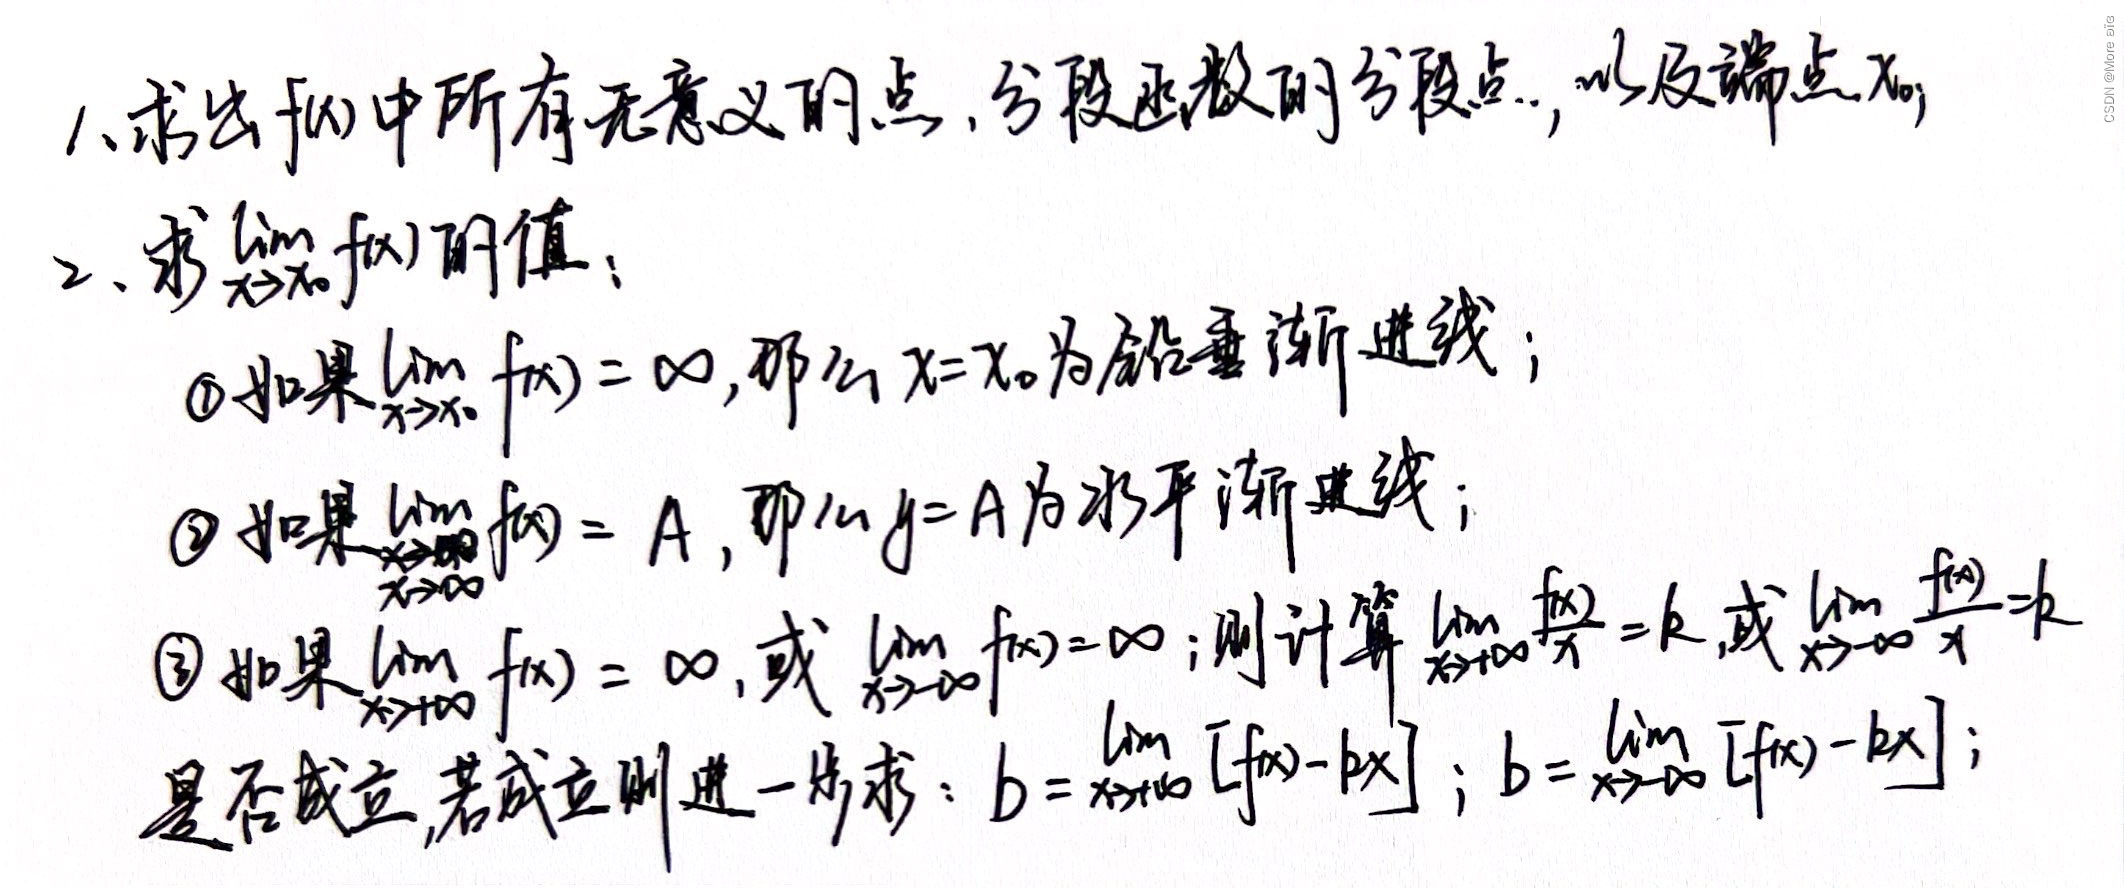 1、求出f(x)中所有无意义的点、分段函数的分段点，以及端点x₀;
2、求lim_{x→x₀} f(x)的值;
①如果lim_{x→x₀} f(x) = ∞, 那么 x=x₀为铅垂渐进线;
②如果lim_{x→∞} f(x) = A, 那么y=A为水平渐进线;
③如果lim_{x→+∞} f(x) = ∞, 或 lim_{x→-∞} f(x)=∞;则计算lim_{x→+∞} f(x)/x =k,或lim_{x→-∞} f(x)/x =k
是否成立,若成立则进一步求: b=lim_{x→+∞} [f(x)-kx]; b=lim_{x→-∞} [f(x)-kx];
CSDN @More